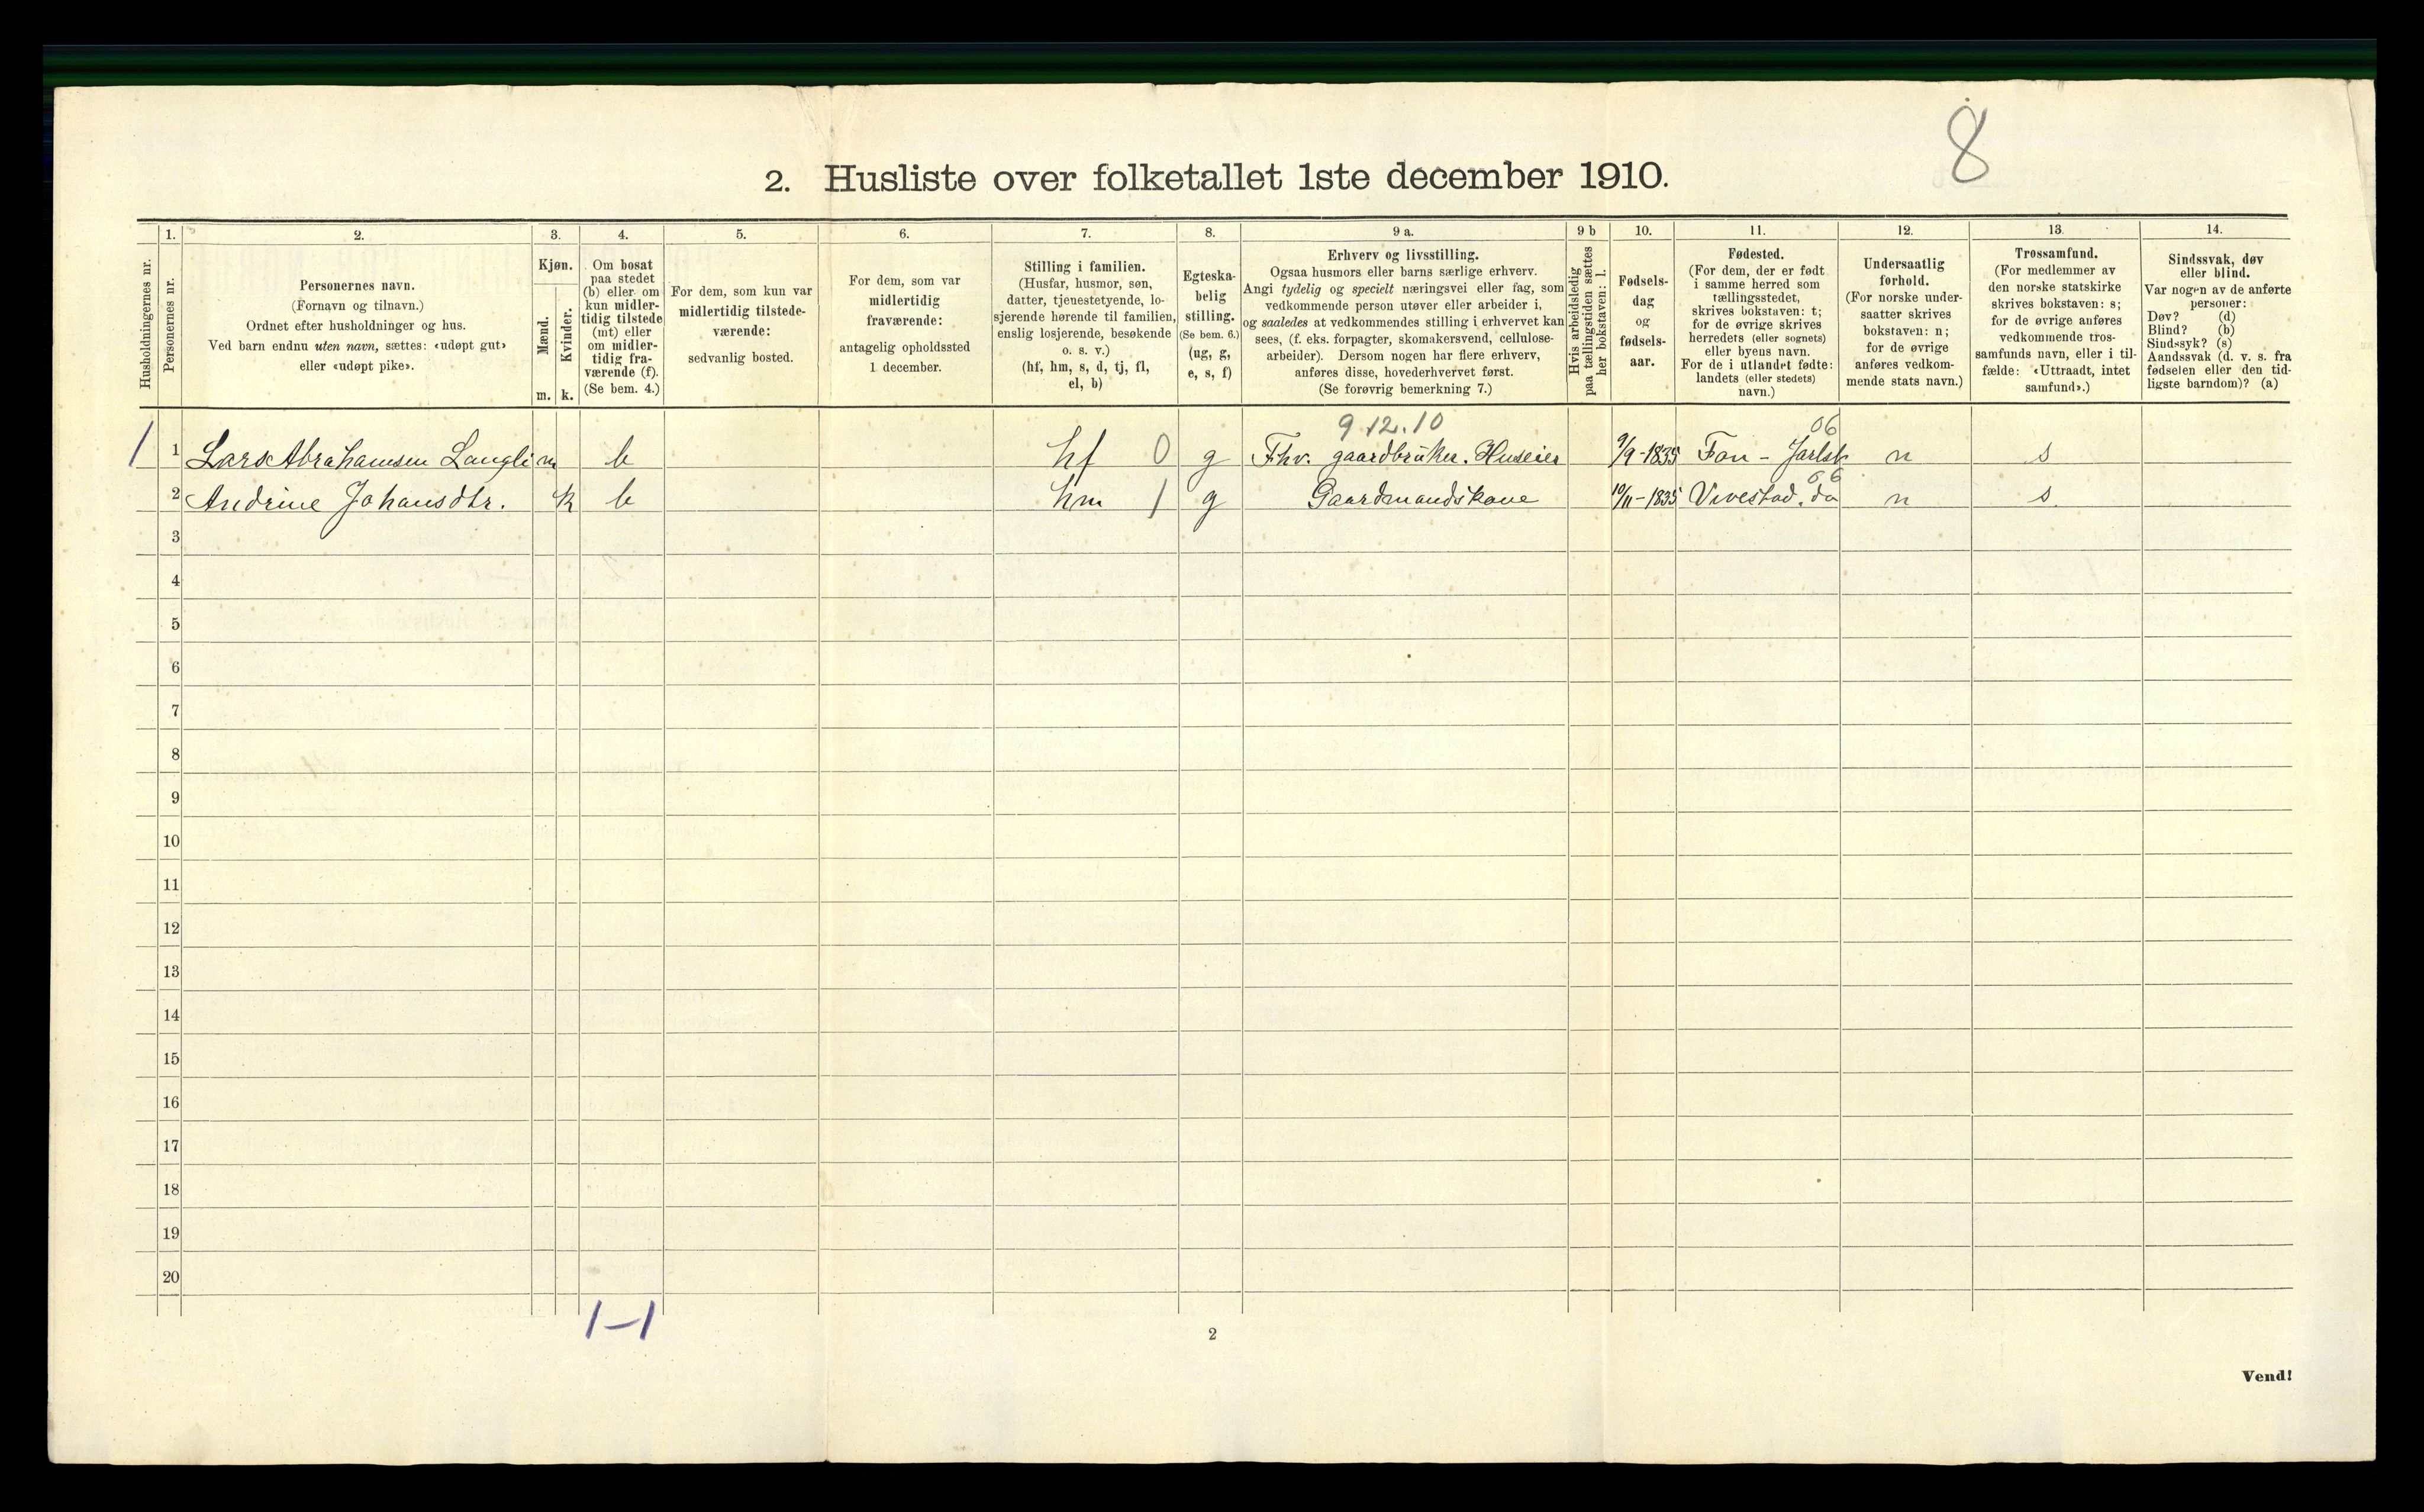 8
2. Husliste over folketallet 1ste december 1910.
Husholdningernes nr.
1.
Personernes nr.
2.
Personernes navn.
(Fornavn og tilnavn.)
Ordnet efter husholdninger og hus.
Ved barn endnu uten navn, sættes: «udøpt gut»
eller «udøpt pike».
3.
Kjøn.
Mænd.
Kvinder.
m. k.
4.
Om bosat
paa stedet
(b) eller om
kun midler-
tidig tilstede
(mt) eller
om midler-
tidig fra-
værende (f).
(Se bem. 4.)
5.
For dem, som kun var
midlertidig tilstede-
værende:
sedvanlig bosted.
6.
For dem, som var
midlertidig
fraværende:
antagelig opholdssted
1 december.
7.
Stilling i familien.
(Husfar, husmor, søn,
datter, tjenestetyende, lo-
sjerende hørende til familien,
enslig losjerende, besøkende
o. s. v.)
(hf, hm, s, d, tj, fl,
el, b)
8.
Egteska-
belig
stilling.
(Se bem. 6.)
(ug, g,
e, s, f)
9 a.
Erhverv og livsstilling.
Ogsaa husmors eller barns særlige erhverv.
Angi tydelig og specielt næringsvei eller fag, som
vedkommende person utøver eller arbeider i,
og saaledes at vedkommendes stilling i erhvervet kan
sees, (f. eks. forpagter, skomakersvend, cellulose-
arbeider). Dersom nogen har flere erhverv,
anføres disse, hovederhvervet først.
(Se forøvrig bemerkning 7.)
9 b
Hvis arbeidsledig
paa tællingstiden sættes
her bokstaven: l.
10.
Fødsels-
dag
og
fødsels-
aar.
11.
Fødested.
(For dem, der er født
i samme herred som
tællingsstedet,
skrives bokstaven: t;
for de øvrige skrives
herredets (eller sognets)
eller byens navn.
For de i utlandet fødte:
landets (eller stedets)
navn.)
12.
Undersaatlig
forhold.
(For norske under-
saatter skrives
bokstaven: n;
for de øvrige
anføres vedkom-
mende stats navn.)
13.
Trossamfund.
(For medlemmer av
den norske statskirke
skrives bokstaven: s;
for de øvrige anføres
vedkommende tros-
samfunds navn, eller i til-
fælde: «Uttraadt, intet
samfund».)
14.
Sindssvak, døv
eller blind.
Var nogen av de anførte
personer:
Døv? (d)
Blind? (b)
Sindssyk? (s)
Aandssvak (d. v. s. fra
fødselen eller den tid-
ligste barndom)? (a)
9.12.10 06
1 1 Lars Abrahamsen Langli m b hf 0 g Fhv. gaardbruker. Huseier 9/9-1835 Fon - Jarlsb n s
06
2 Andrine Johansdtr. k b hm 1 g Gaardmandskone 10/11-1835 Vivestad. do n s.
3
4
5
6
7
8
9
10
11
12
13
14
15
16
17
18
19
20
1-1
2
Vend!